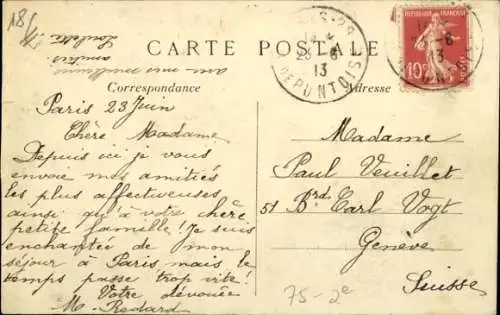 18/
CARTE POSTALE
Correspondance
Adresse
RÉPUBLIQUE FRANÇAISE
10c
13
Paris 23 Juin
Chère Madame
Depuis ici je vous
envoie mes amitiés
les plus affectueuses
ainsi qu'à votre chère
petite famille! Je suis
enchantée de mon
séjour à Paris mais le
temps passe trop vite!
Votre dévouée
M. Redard
Madame
Paul Veuillet
51 Brd. Carl Vogt
Genève
Suisse
75-2e